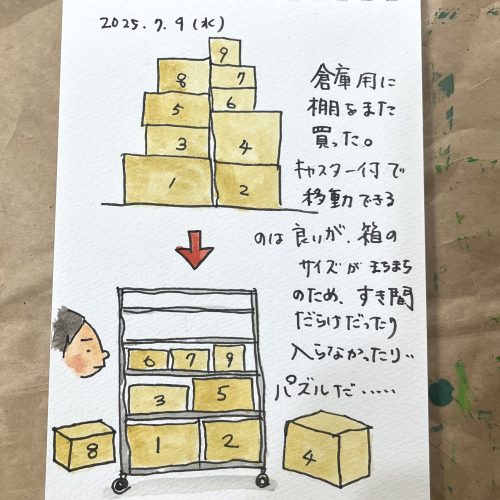 2025.7.9(水)
9
8 7
5 6
3 4
1 2
倉庫用に
棚をまた
買った。
キャスター付で
移動できる
のは良いが、箱の
サイズがまちまち
のため、すき間
だらけだったり
入らなかったり..
パズルだ‥‥‥
6 7 9
3 5
8 1 2 4